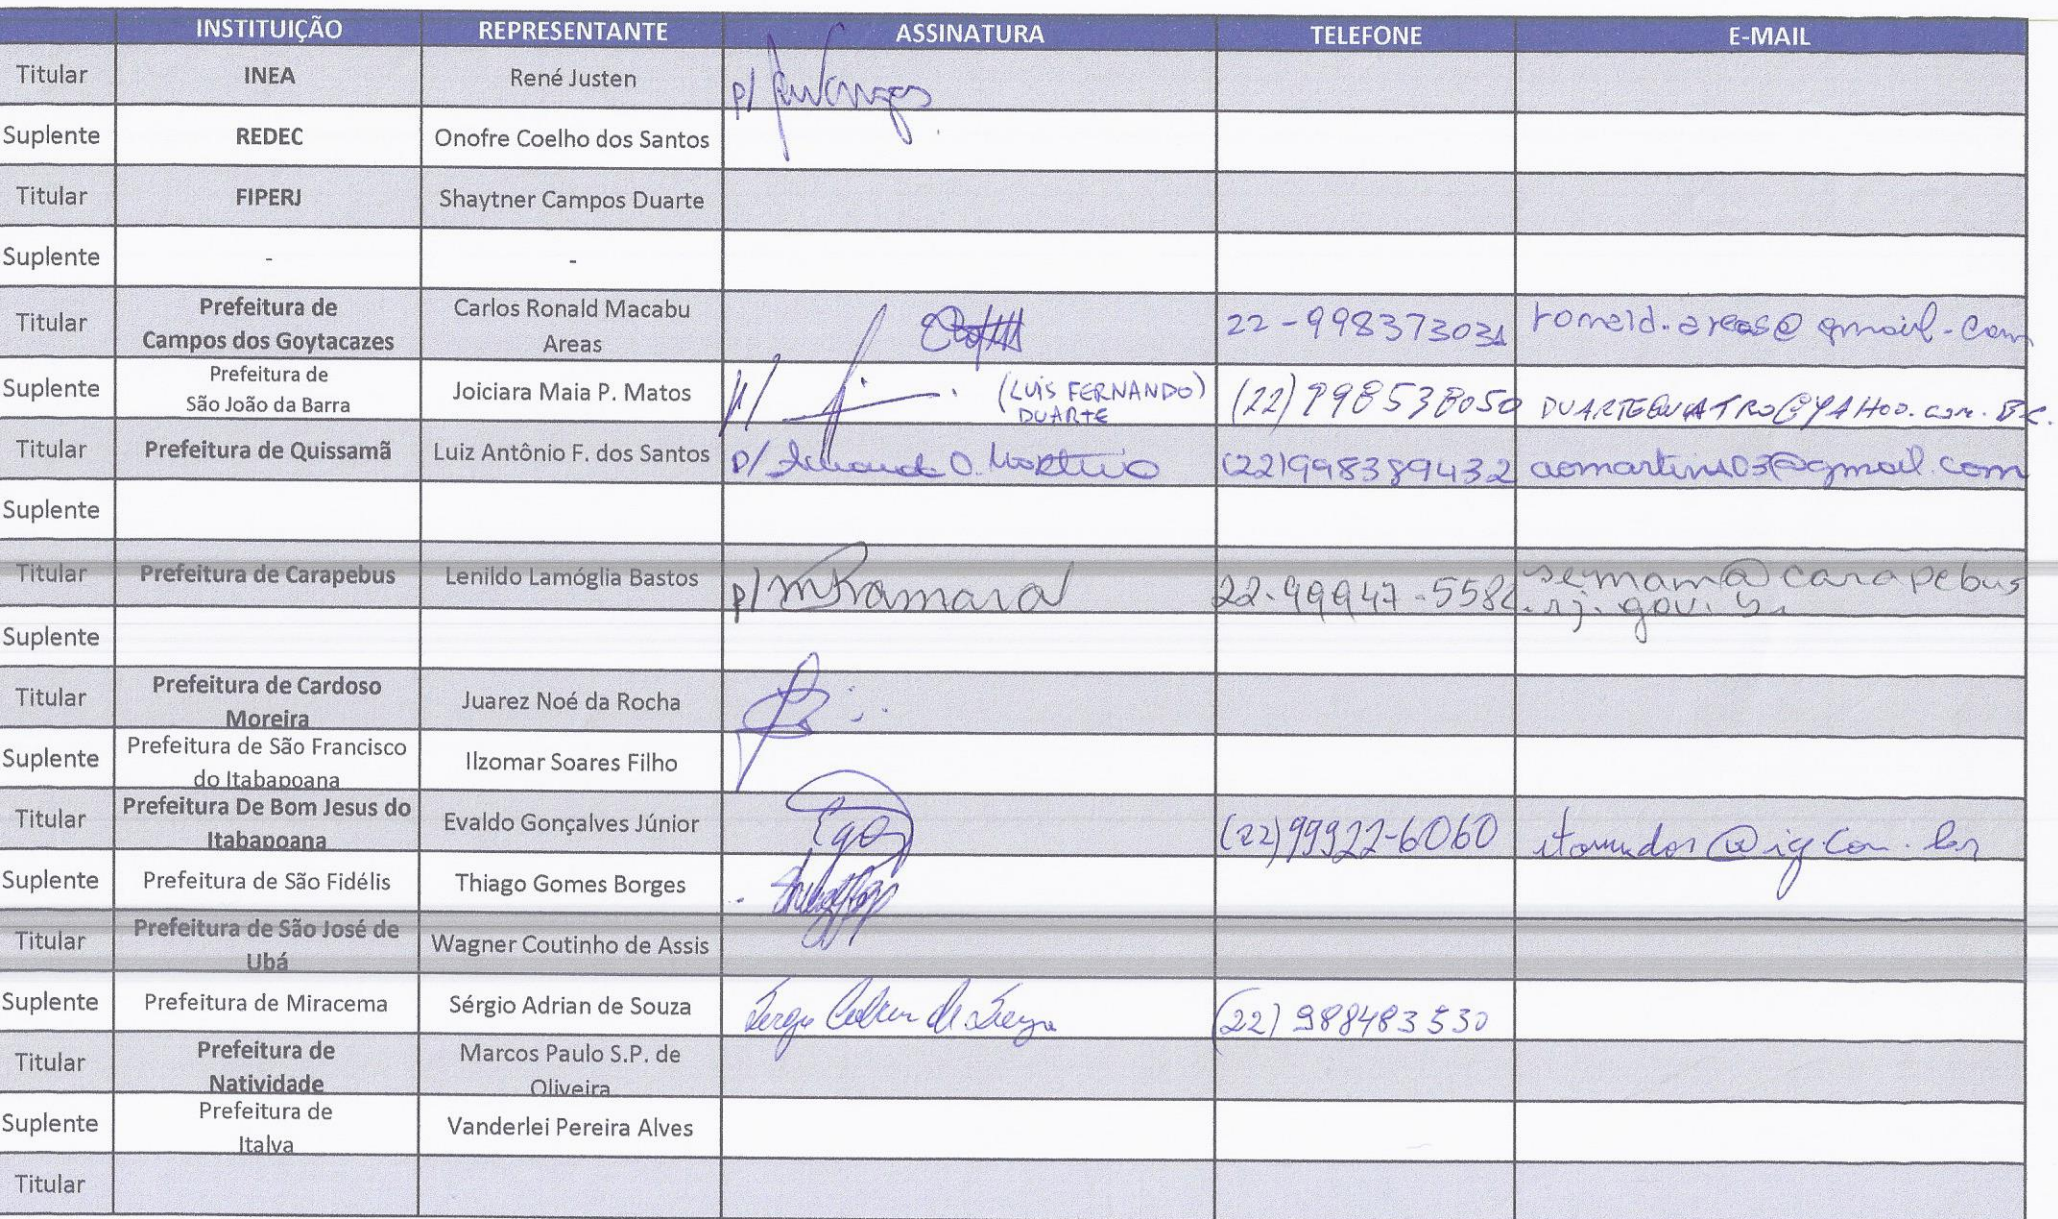 INSTITUIÇÃO REPRESENTANTE ASSINATURA TELEFONE E-MAIL
Titular INEA René Justen p/
Suplente REDEC Onofre Coelho dos Santos
Titular FIPERJ Shaytner Campos Duarte
Suplente - -
Titular Prefeitura de Campos dos Goytacazes Carlos Ronald Macabu Areas 22-998373031 ronald.areas@gmail.com
Suplente Prefeitura de São João da Barra Joiciara Maia P. Matos p/ (LUIS FERNANDO) DUARTE (22) 998538050 DUARTEQUATRO@YAHOO.com.BR.
Titular Prefeitura de Quissamã Luiz Antônio F. dos Santos p/ O. (22)998389432 aomartins03@gmail.com
Suplente
Titular Prefeitura de Carapebus Lenildo Lamóglia Bastos p/ 22.99947-558 semam@carapebus
.rj.gov.br
Suplente
Titular Prefeitura de Cardoso Moreira Juarez Noé da Rocha
Suplente Prefeitura de São Francisco do Itabapoana Ilzomar Soares Filho
Titular Prefeitura De Bom Jesus do Itabapoana Evaldo Gonçalves Júnior (22)99922-6060 @ig.com.br
Suplente Prefeitura de São Fidélis Thiago Gomes Borges
Titular Prefeitura de São José de Ubá Wagner Coutinho de Assis
Suplente Prefeitura de Miracema Sérgio Adrian de Souza Sergio Adrian de Souza (22) 988483530
Titular Prefeitura de Natividade Marcos Paulo S.P. de Oliveira
Suplente Prefeitura de Italva Vanderlei Pereira Alves
Titular